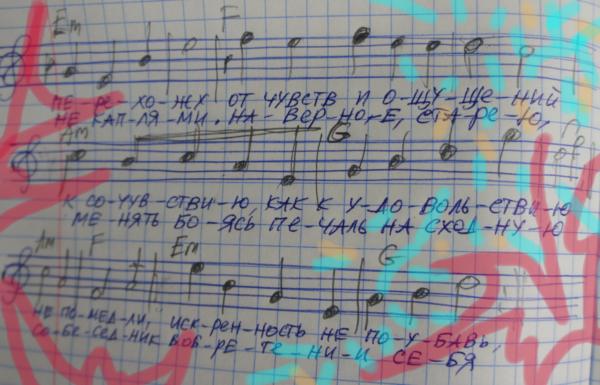 Em F
ПЕ-РЕ-ХО-ЖУ ОТ ЧУВСТВ И О-ЩУ-ЩЕ-НИЙ
НЕ КАП-ЛЯ-МИ. НА-ВЕР-НО-Е, СТА-РЕ-Ю,
Am G
К СО-ЧУВ-СТВИ-Ю, КАК К У-ДО-ВОЛЬ-СТВИ-Ю
МЕ-НЯТЬ БО-ЯСЬ ПЕ-ЧАЛЬ НА СХОД-НУ-Ю
Am F Em G
НЕ ПО-МЕД-ЛИ, ИСК-РЕН-НОСТЬ НЕ ПО-У-БАВЬ,
СО-БЕ-СЕД-НИК ВОВ-РЕ-ТЕ-НИ-И СЕ-БЯ